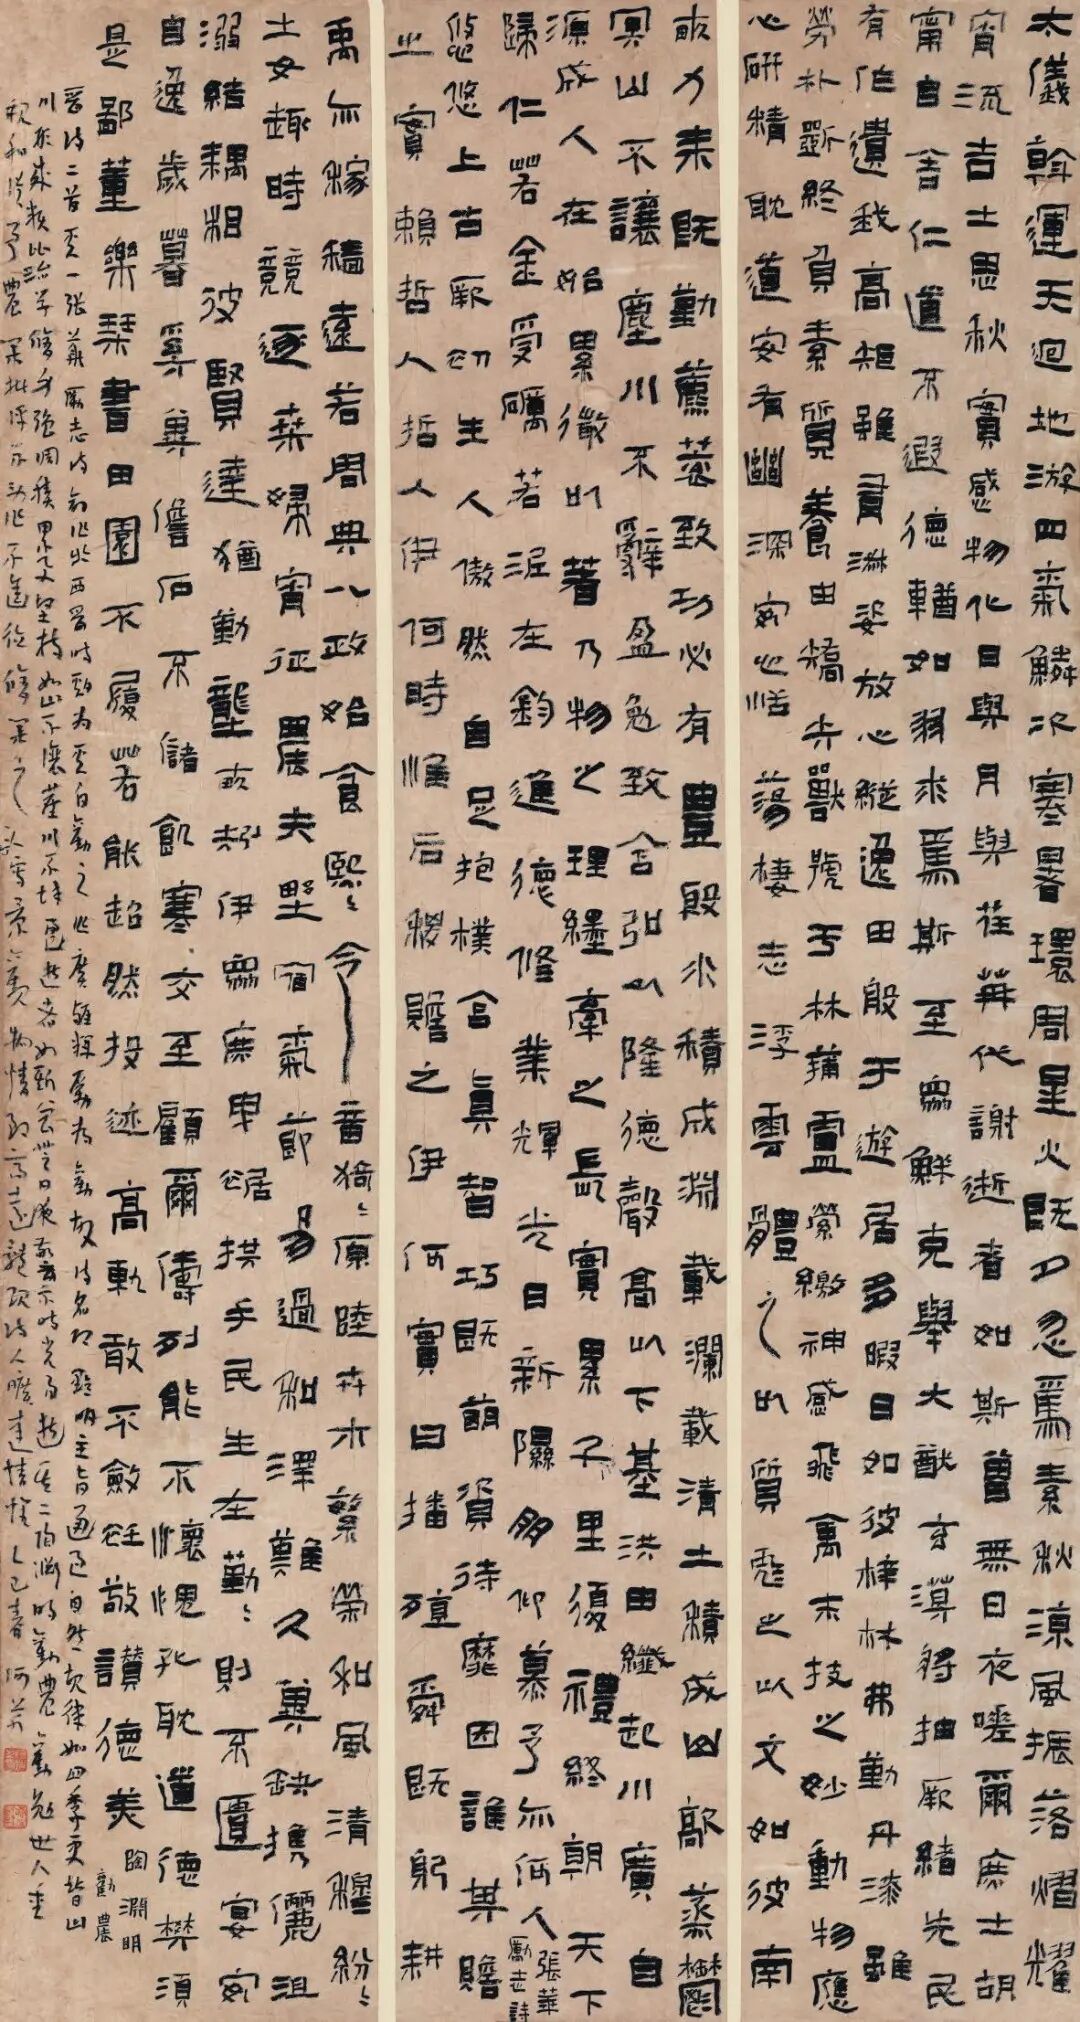 太儀斡運天迴地游四氣鱗次寒暑環周星火既夕忽焉素秋涼風振落熠燿
宵流吉士思秋實感物化日與月與荏苒代謝逝者如斯曾無日夜嗟爾庶士胡
甯自舍仁道不遐德輶如羽求焉斯至眾鮮克舉大猷玄漠將抽厥緒先民
有作遺我高矩雖有淑姿放心縱逸田般于遊居多暇日如彼梓材弗勤丹漆雖
勞朴斲終負素質養由矯矢獸號于林蒲盧縈繳神感飛禽末技之妙動物應
心研精耽道安有幽深安心恬蕩棲志浮雲體之以質彪之以文如彼南
畝力耒既勤藨蓘致功必有豐殷水積成淵載瀾載清土積成山歊蒸鬱
冥山不讓塵川不辭盈勉致含弘以隆德聲高以下基洪由纖起川廣自
源成人在始累微以著乃物之理纆牽之長實累千里復禮終朝天下
歸仁若金受礪若泥在鈞進德脩業輝光日新隰朋仰慕予亦何人
張華
勵志詩
悠悠上古厥初生人傲然自足抱樸含真智巧既萌資待靡因誰其贍
之實賴哲人哲人伊何時惟后稷贍之伊何實曰播殖舜既躬耕
禹亦稼穡遠若周典八政始食熙〻令音猗〻原陸卉木繁榮和風清穆紛〻
士女趨時競逐桑婦宵征農夫野宿氣節易過和澤難久冀缺攜儷沮
溺結耦相彼賢達猶勤壟畝矧伊眾庶曳裾拱手民生在勤〻則不匱宴安
自逸歲暮奚冀儋石不儲飢寒交至顧爾儔列能不懷愧孔耽道德樊須
是鄙董樂琴書田園不履若能超然投迹高軌敢不斂衽敬讚德美
陶淵明
勸農
晉詩二首其一張華勵志詩創作於西晉時期為其自勵之作